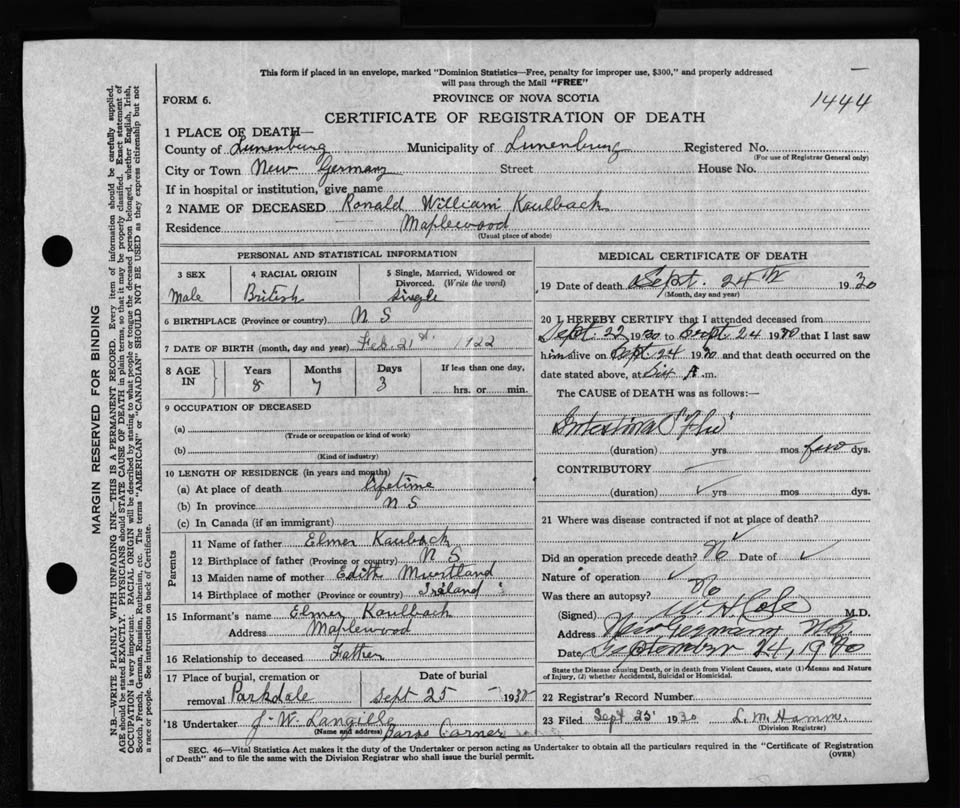 This form if placed in an envelope, marked "Dominion Statistics—Free, penalty for improper use, $300," and properly addressed
will pass through the Mail "FREE"
FORM 6.
PROVINCE OF NOVA SCOTIA
1444
CERTIFICATE OF REGISTRATION OF DEATH
1 PLACE OF DEATH—
County of Lunenburg Municipality of Lunenburg Registered No.
(For use of Registrar General only)
City or Town New Germany Street House No.
If in hospital or institution, give name
2 NAME OF DECEASED Ronald William Kaulback
Residence Maplewood
(Usual place of abode)
PERSONAL AND STATISTICAL INFORMATION
3 SEX 4 RACIAL ORIGIN 5 Single, Married, Widowed or
Divorced. (Write the word)
Male British single
6 BIRTHPLACE (Province or country) N S
7 DATE OF BIRTH (month, day and year) Feb 21st. 1922
8 AGE IN Years Months Days If less than one day,
8 7 3 hrs. or min.
9 OCCUPATION OF DECEASED
(a)
(Trade or occupation or kind of work)
(b)
(Kind of industry)
10 LENGTH OF RESIDENCE (in years and months)
(a) At place of death lifetime
(b) In province N S
(c) In Canada (if an immigrant)
Parents
11 Name of father Elmer Kaulback
12 Birthplace of father (Province or country) N S
13 Maiden name of mother Edith Murtland
14 Birthplace of mother (Province or country) Ireland
15 Informant's name Elmer Kaulback
Address Maplewood
16 Relationship to deceased Father
17 Place of burial, cremation or Date of burial
removal Parkdale Sept 25 1930
18 Undertaker J. W. Langille
(Name and address) Barss Corner
MEDICAL CERTIFICATE OF DEATH
19 Date of death Sept. 24TH 1930
(Month, day and year)
20 I HEREBY CERTIFY that I attended deceased from
Sept. 22 1930 to Sept. 24 1930 that I last saw
him alive on Sept. 24 1930 and that death occurred on the
date stated above, at Six A.m.
The CAUSE of DEATH was as follows:—
Intestinal "Flu"
(duration) yrs mos few dys.
CONTRIBUTORY
(duration) yrs mos dys.
21 Where was disease contracted if not at place of death?
Did an operation precede death? No Date of
Nature of operation
Was there an autopsy? No
(Signed) M.D.
Address New Germany N.S.
Date September 24, 1930
State the Disease causing Death, or in death from Violent Causes, state (1) Means and Nature
of Injury, (2) whether Accidental, Suicidal or Homicidal.
22 Registrar's Record Number
23 Filed Sept 25 1930 L. M. Hamm.
(Division Registrar)
SEC. 46—Vital Statistics Act makes it the duty of the Undertaker or person acting as Undertaker to obtain all the particulars required in the "Certificate of Registration
of Death" and to file the same with the Division Registrar who shall issue the burial permit. (OVER)
MARGIN RESERVED FOR BINDING
N.B.—WRITE PLAINLY, WITH UNFADING INK—THIS IS A PERMANENT RECORD. Every item of information should be carefully supplied.
AGE should be stated EXACTLY. PHYSICIANS should STATE CAUSE OF DEATH in plain terms, so that it may be properly classified. Exact statement of
OCCUPATION is very important. RACIAL ORIGIN will be described by stating to what people or tongue the deceased person belonged, whether English, Irish,
Scotch, French, German, Russian, Ruthenian, etc. The terms "AMERICAN" or "CANADIAN" SHOULD NOT BE USED as they express citizenship but not
a race or people. See instructions on back of Certificate.